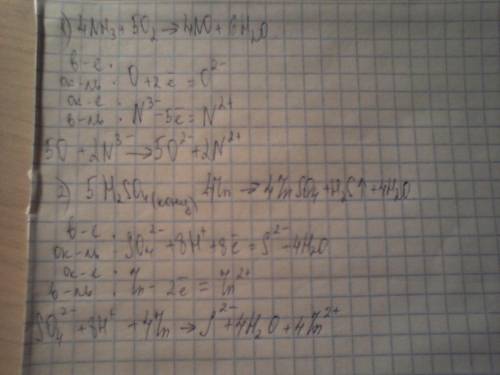 1) 4NH₃ + 5O₂ → 4NO + 6H₂O
в-е :
ок-ль : O + 2ē = O²⁻
ок-е :
в-ль : N³⁻ - 5ē = N²⁺
5O + 2N³⁻ → 5O²⁻ + 2N²⁺
2) 5H₂SO₄(конц) 4Zn → 4ZnSO₄ + H₂S↑ + 4H₂O
в-е :
ок-ль : SO₄²⁻ + 8H⁺ + 8ē = S²⁻ - 4H₂O
ок-е :
в-ль : Zn - 2ē = Zn²⁺
SO₄²⁻ + 8H⁺ + 4Zn → S²⁻ + 4H₂O + 4Zn²⁺